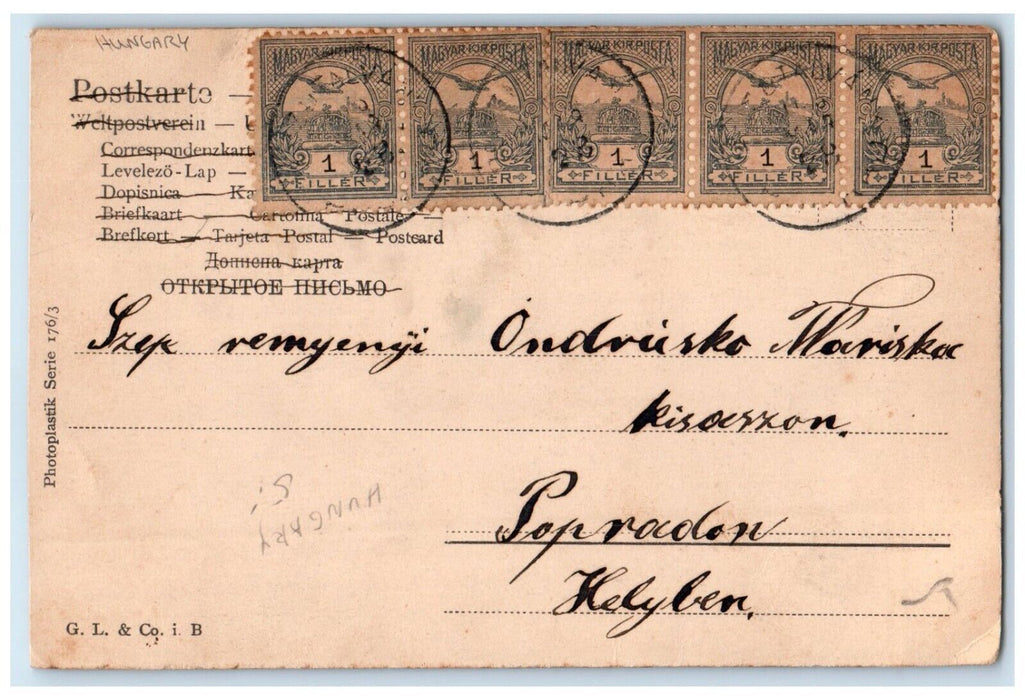 HUNGARY
MAGYAR KIR. POSTA MAGYAR KIR. POSTA MAGYAR KIR. POSTA MAGYAR KIR. POSTA MAGYAR KIR. POSTA
1 1 1 1 1
FILLÉR FILLÉR FILLÉR FILLÉR FILLÉR
Postkarte —
Weltpostverein — U
Correspondenzkart
Levelező-Lap —
Dopisnica — Ka
Briefkaart — Cartolina Postale —
Brefkort — Tarjeta Postal — Postcard
ОТКРЫТОЕ ПИСЬМО
Szep remyenyi Ondrúsko Mariska
kisaszon.
Popradon
Helyben.
HUNGARY
Photoplastik Serie 176/3
G. L. & Co. i. B